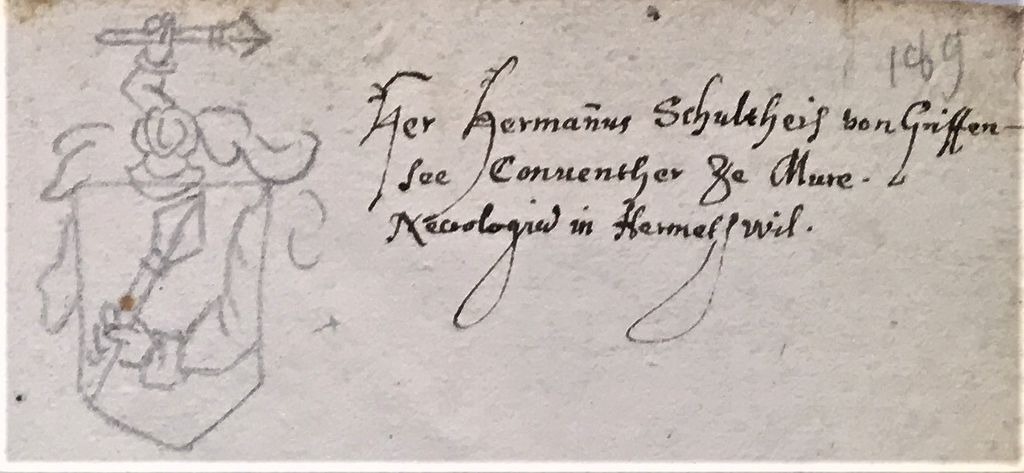 169
Her Hermañus Schultheis von Griffen-
see Conuenther Ze Mure.
in Hermetswil.